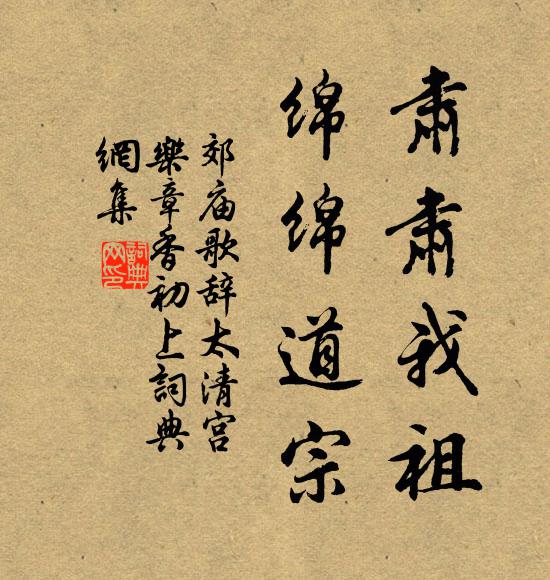 肃肃我祖
绵绵道宗
郊庙歌辞太清宫
樂章香初上詞典
網集
詞典
网印